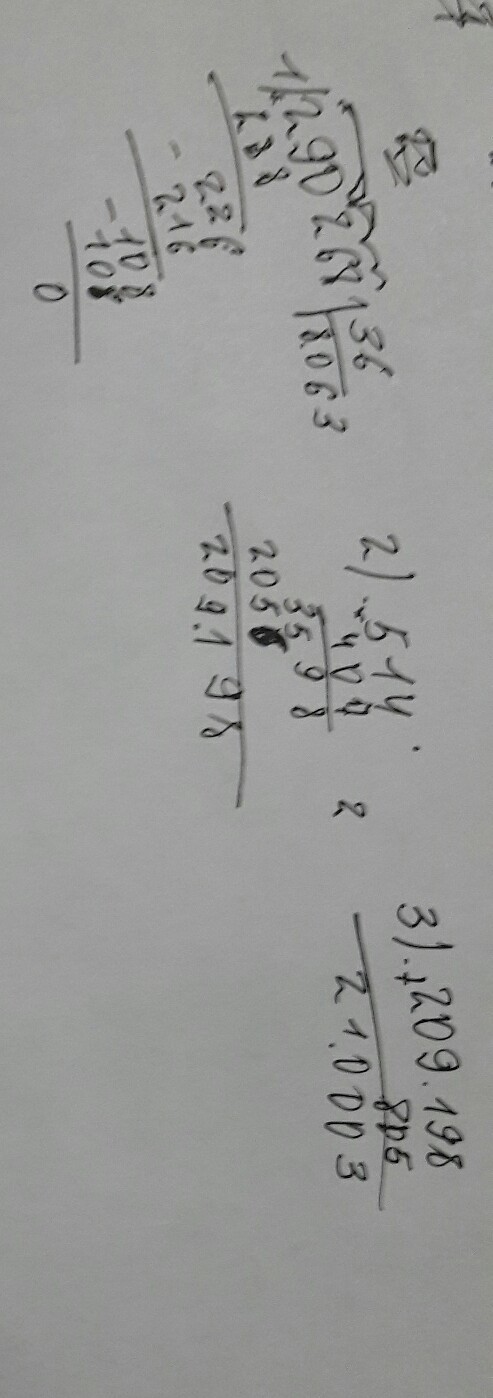 1) 290 268 | 36
288 8063
- 226
216
- 108
108
0
2) × 514
407
3598
2056
209.198
2
3) + 209.198
805
21.0003